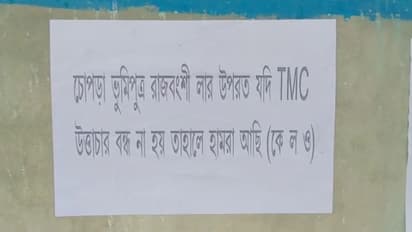 চোপড়া ভুমিপুত্র রাজবংশী লার উপরত যদি TMC
উত্তাচার বন্ধ না হয় তাহালে হামরা আছি (কে ল ও)